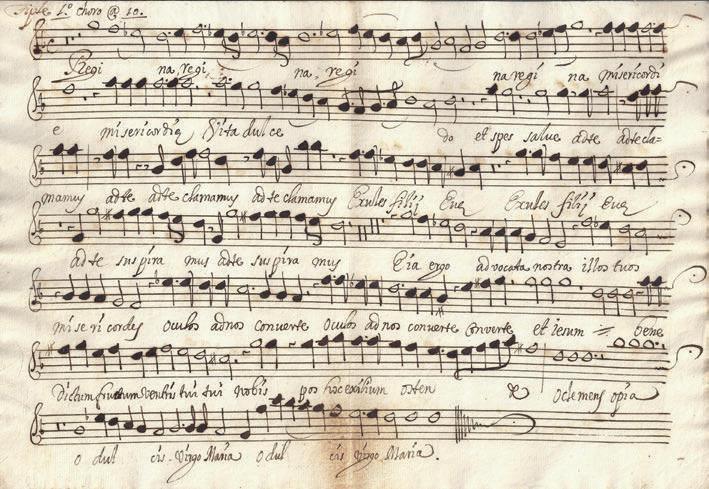 Tiple 1.º choro @ 10.
Regi na, regi na, regi na regi na misericordi
e misericordia Vita dulce do et spes salue adte adtecla=
mamus adte adte clamamus adte clamamus Exules filij Eue Exules filij Eue
adte suspira mus adte suspira mus Eia ergo aduocata nostra illos tuos
misericordes oculos adnos conuerte oculos adnos conuerte conuerte et iesum = bene
dictum fructum uentris tui tui nobis pos hoc exilium osten de o clemens o pia
o dul cis virgo Maria o dul cis virgo Maria.